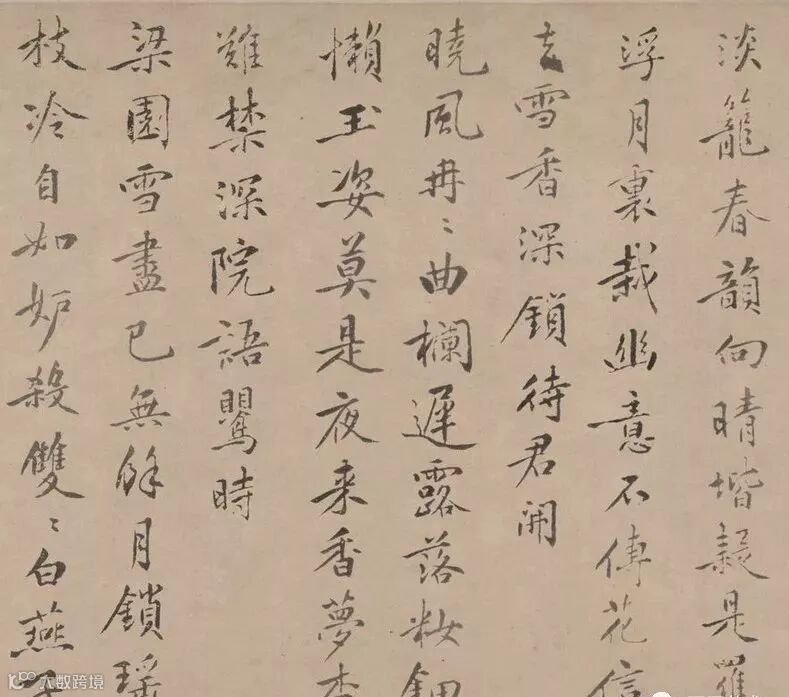 淡籠春韻向晴堦疑是羅
浮月裏栽幽意不傳花信
去雪香深鎖待君開
曉風冉〻曲欄遲露落籹鈿
懶玉姿莫是夜来香夢
難禁深院語鸎時
梁園雪盡已無餘月鎖瑤
枝冷自如妒殺雙〻白燕
大数跨境